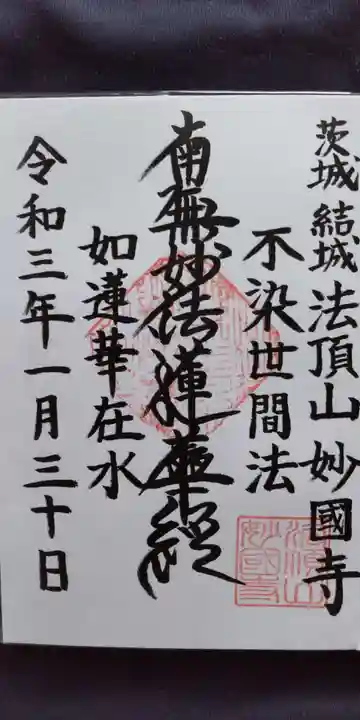 茨城 結城 法頂山 妙國寺
不染世間法
南無妙法蓮華経
如蓮華在水
令和三年一月三十日
法頂山
妙國寺